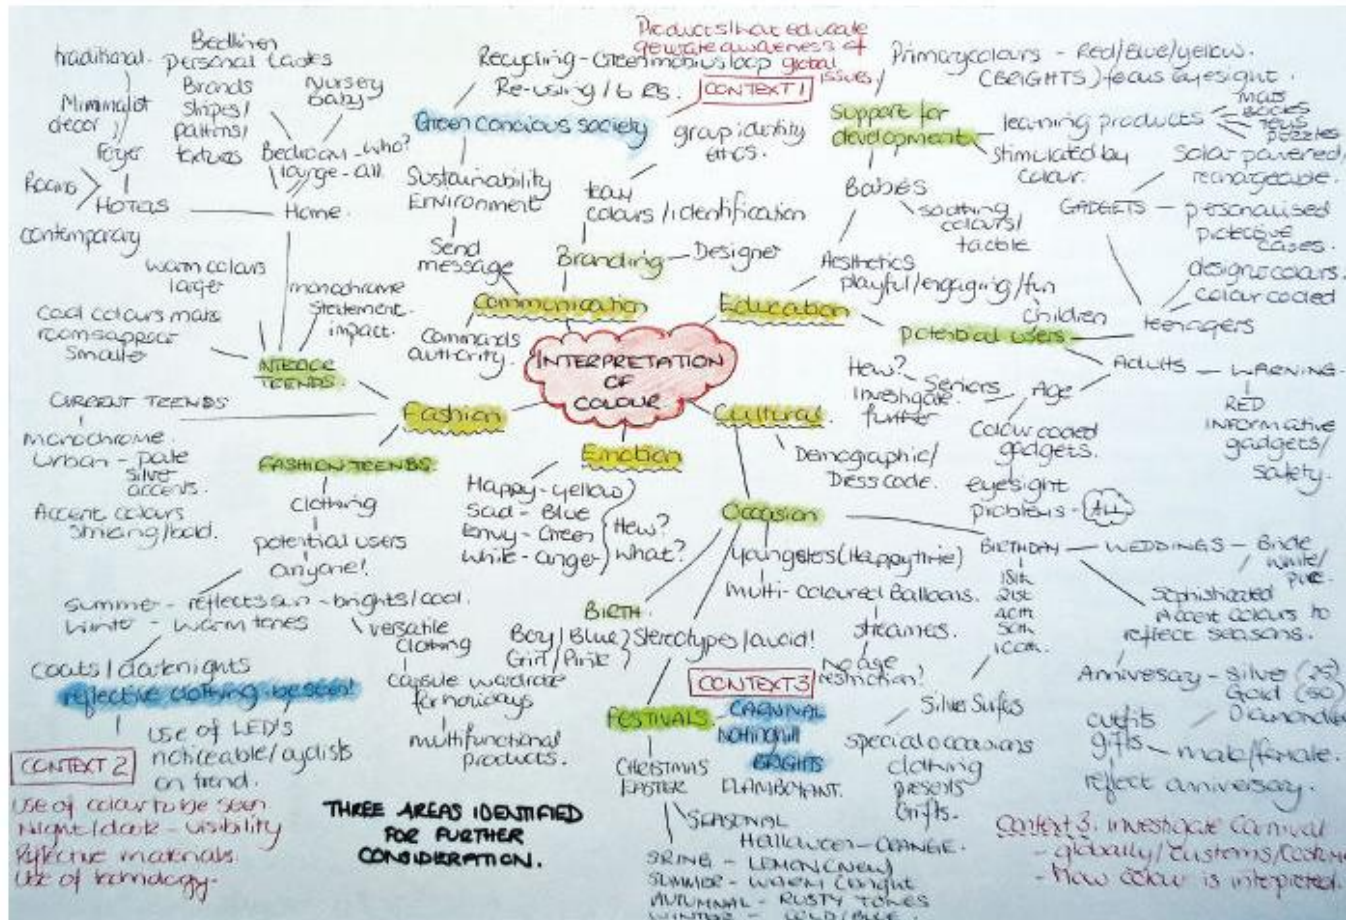 traditional.
Minimalist
decor
Foyer
Rooms
HOTELS
contemporary
Bedlinen
personal tastes
Brands
stripes/
patterns/
textures
Nursery
baby
Bedroom - who?
large - all.
Home.
warm colours
larger
cool colours make
rooms appear
smaller
monochrome
statement.
impact.
INTERIOR
TRENDS.
Recycling - Green mobius loop
Re-using / 6 Rs.
Green concious society
Sustainability
Environment
Send
message
Products that educate
generate awareness of
global
issues/
CONTEXT 1
group identity
ethics.
team
colours / identification
Branding
Designer
Communication
Commands
authority.
Primary colours - Red/Blue/yellow.
(BRIGHTS) focus eyesight.
Support for
development
learning products
Mats
Books
Toys
Puzzles
stimulated by
colour.
Babies
soothing
colours/
tactile
Aesthetics
playful/engaging/fun
children
Education
potential users
Solar powered/
rechargeable.
GADGETS
personalised
protective
cases.
designs colours.
colour coded
teenagers
ADULTS
WARNING
RED
INFORMATIVE
gadgets/
safety.
INTERPRETATION
OF
COLOUR
Fashion
Emotion
Cultural
How?
Investigate
further
Seniors
Age
Colour coded
gadgets.
eyesight
problems -
ALL
CURRENT TRENDS
Monochrome.
Urban - pale
silver
accents.
Accent colours
striking/bold.
FASHION TRENDS
clothing
potential users
anyone!
Summer - reflects sun - brights/cool.
Winter - warm tones
versatile
clothing
capsule wardrobe
for holidays
multifunctional
products.
coats / dark nights
reflective clothing - be seen!
Use of LED's
noticeable/cyclists
on trend.
CONTEXT 2
Use of colour to be seen
Night/dark - visibility
Reflective materials.
Use of technology.
THREE AREAS IDENTIFIED
FOR FURTHER
CONSIDERATION.
Happy - yellow
Sad - Blue
Envy - Green
White - anger
How?
What?
Demographic/
Dress code.
Occasion
youngsters (Happy time)
multi-coloured Balloons.
streamers.
No age
restriction?
BIRTH
Boy / Blue
Girl / Pink
Stereotypes / avoid!
CONTEXT 3
FESTIVALS.
CARNIVAL
Nottinghill
BRIGHTS
FLAMBOYANT.
CHRISTMAS
EASTER
SEASONAL
Halloween - ORANGE.
SPRING - LEMON (NEW)
SUMMER - WARM BRIGHT
AUTUMNAL - RUSTY TONES
WINTER - COLD/BLUE.
BIRTHDAY
18th
21st
40th
50th
100th.
Silver Surfers
special occasions
clothing
presents
Gifts.
WEDDINGS - Bride
white/
pure.
Sophisticated
Accent colours to
reflect seasons.
Anniversary - Silver (25)
Gold (50)
Diamond
outfits
gifts
male/female.
reflect anniversary.
Context 3: investigate Carnival
- globally/customs/
- How colour is interpreted.